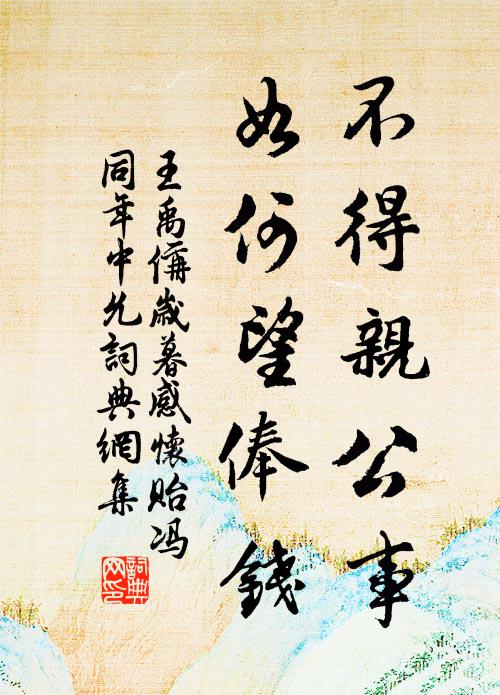 不得親公事
如何望俸錢
王禹偁歲暮感懷貽冯
同年中允詞典網集
詞典网印